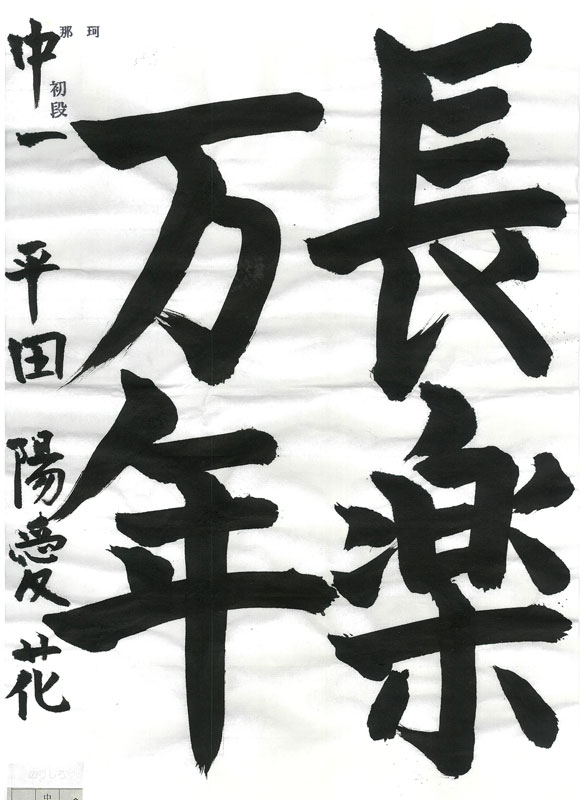 長楽
万年
中一 平田 陽愛花
初段
珂那
のりしろ
中